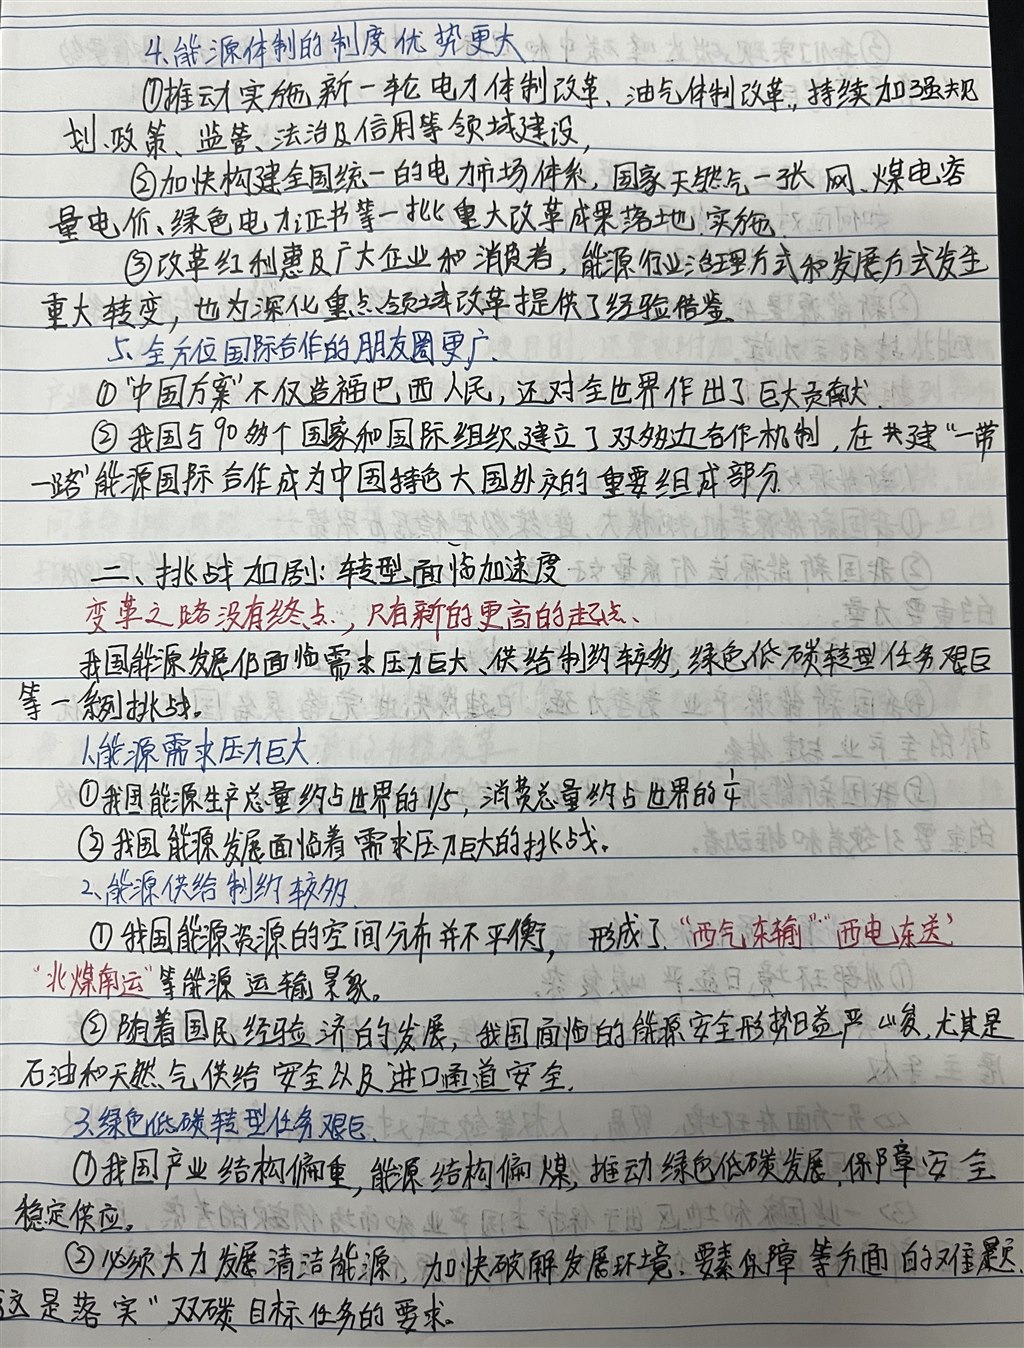 4.能源体制的制度优势更大
①推动实施新一轮电力体制改革、油气体制改革，持续加强规
划、政策、监管、法治及信用等领域建设，
②加快构建全国统一的电力市场体系，国家天然气一张网、煤电容
量电价、绿色电力证书等一批重大改革成果落地实施
③改革红利惠及广大企业和消费者，能源行业治理方式和发展方式发生
重大转变，也为深化重点领域改革提供了经验借鉴。
5.全方位国际合作的朋友圈更广.
①"中国方案"不仅造福巴西人民，还对全世界作出了巨大贡献.
②我国与90多个国家和国际组织建立了双多边合作机制，在共建"一带
一路"能源国际合作成为中国特色大国外交的重要组成部分
二、挑战加剧：转型面临加速度
变革之路没有终点，只有新的更高的起点、
我国能源发展仍面临需求压力巨大、供给制约较多，绿色低碳转型任务艰巨
等一系列挑战。
1.能源需求压力巨大.
①我国能源生产总量约占世界的1/5，消费总量约占世界的¼
②我国能源发展面临着需求压力巨大的挑战。
2、能源供给制约较多.
①我国能源资源的空间分布并不平衡，形成了"西气东输""西电东送"
"北煤南运"等能源运输景象。
②随着国民经验济的发展，我国面临的能源安全形势日益严山复，尤其是
石油和天然气供给安全以及进口通道安全.
3.绿色低碳转型任务艰巨.
①我国产业结构偏重，能源结构偏煤，推动绿色低碳发展，保障安全
稳定供应。
②必须大力发展清洁能源，加快破解发展环境、要素保障等方面的难题.
这是落实"双碳目标任务的要求。